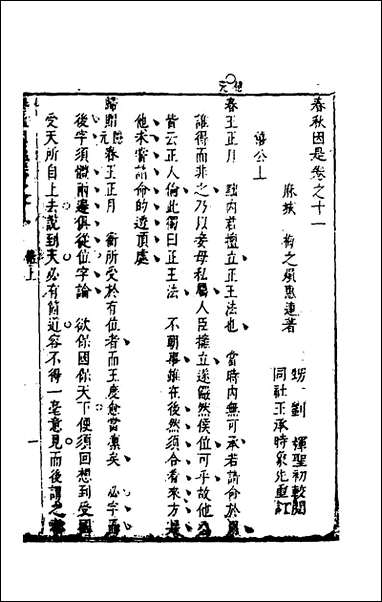 春秋因是卷之十一
麻城 梅之熉惠連著
甥 劉 煇聖初較閱
同社王承時象先重訂
僖公上
僖元
春王正月 經内君擅立正王法也 當時内無可承若請命於周
誰得而非之乃以妾母私屬人臣擅立遂儼然侯位可乎故他公
皆云正人倫此獨曰正王法 不朝事雖在後然須合看來方是
他未嘗請命的逆頂處
歸賵 隱元 春王正月 衛所受於有位者而王度愈當凜矣 必字而
後字須體兩邊俱從位字論 欲保國保天下便須回想到受國
受天所自上去說到天必有簡近容不得一毫意見而後謂之
卷上
一